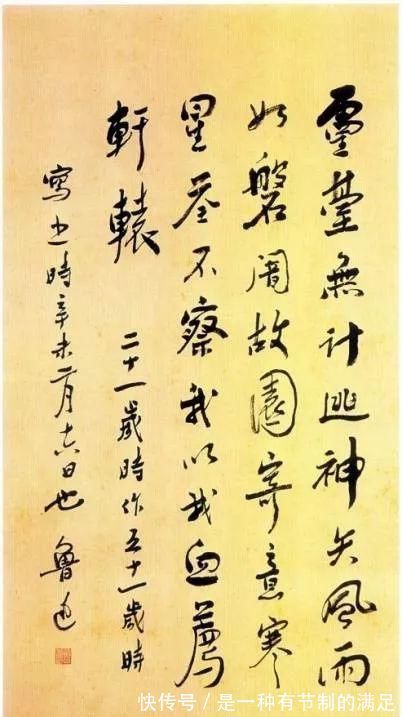 靈臺無計逃神矢風雨
如磐闇故園寄意寒
星荃不察我以我血薦
軒轅 二十一歲時作五十一歲時
寫之時辛未二月十六日也 魯迅
快传号 / 是一种有节制的满足